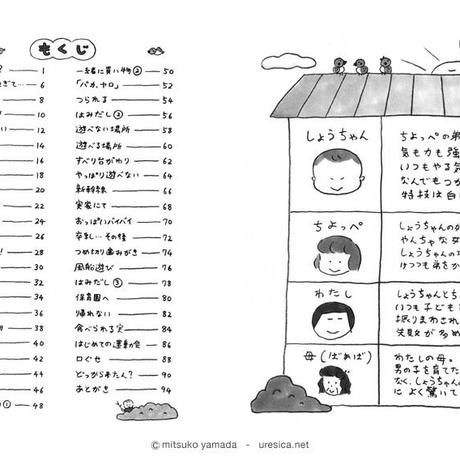 もくじ
1
6
8
10
12
14
16
18
20
22
24
26
28
30
32
34
36
38
40
44
46
48
一緒に買い物② 50
「バカ、ヤロ」 52
つられる 54
はみだし② 56
遊べない場所 58
遊べる場所 60
すべり台がわり 62
やっぱり遊べない 64
新幹線 66
実家にて 68
おっぱいバイバイ 70
卒乳…その後 72
つめ切り歯みがき 74
風船遊び 76
はみだし③ 78
保育園へ 80
帰れない 82
食べられる実 84
はじめての運動会 86
口ぐせ 88
どっから来たん? 90
あとがき 94
しょうちゃん
ちよっぺの弟
気も力も強
いつもやる気
なんでもつか
特技は自
ちよっぺ
しょうちゃんの
やんちゃな
しょうちゃんの
けつつも弟を
わたし
しょうちゃんとち
いつも子ども
振りまわされ
失敗が多め
母(ばぁば)
わたしの母。
男の子を育てた
なく、しょうちゃん
によく驚いて
© mitsuko yamada - uresica.net